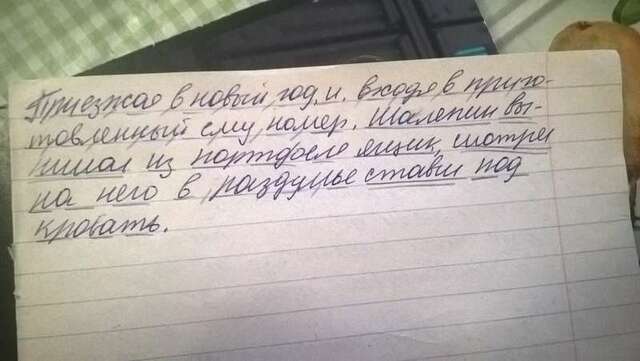 Приезжае в новый год, и. входя в приго-
товленный ему номер. Шаляпин вы-
нимал из портфеля ящик, смотрел
на него в раздумье ставил под
кровать.